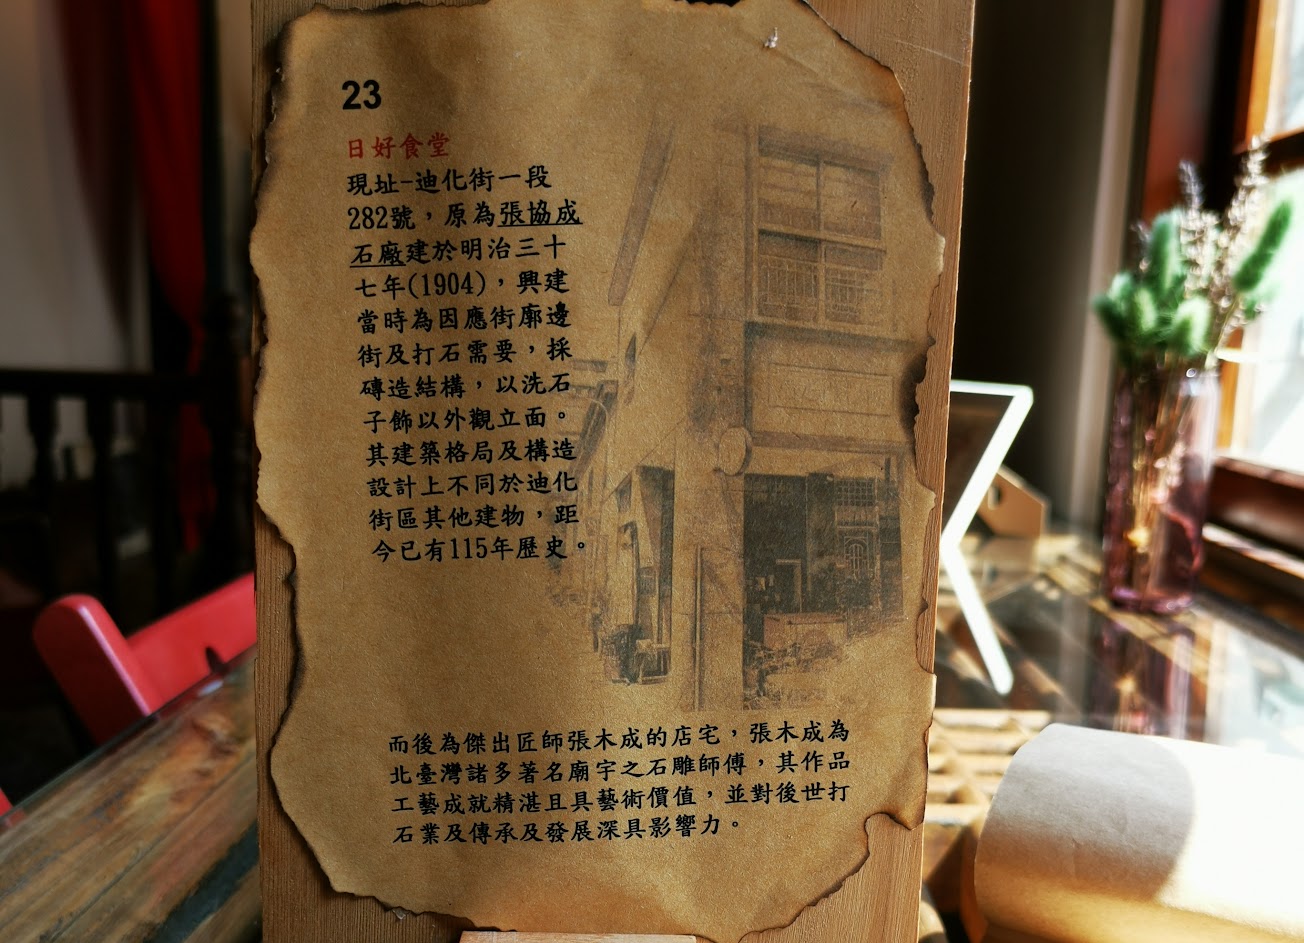 23
日好食堂
現址-迪化街一段
282號，原為張協成
石廠建於明治三十
七年(1904)，興建
當時為因應街廓邊
街及打石需要，採
磚造結構，以洗石
子飾以外觀立面。
其建築格局及構造
設計上不同於迪化
街區其他建物，距
今已有115年歷史。
而後為傑出匠師張木成的店宅，張木成為
北臺灣諸多著名廟宇之石雕師傅，其作品
工藝成就精湛且具藝術價值，並對後世打
石業及傳承及發展深具影響力。